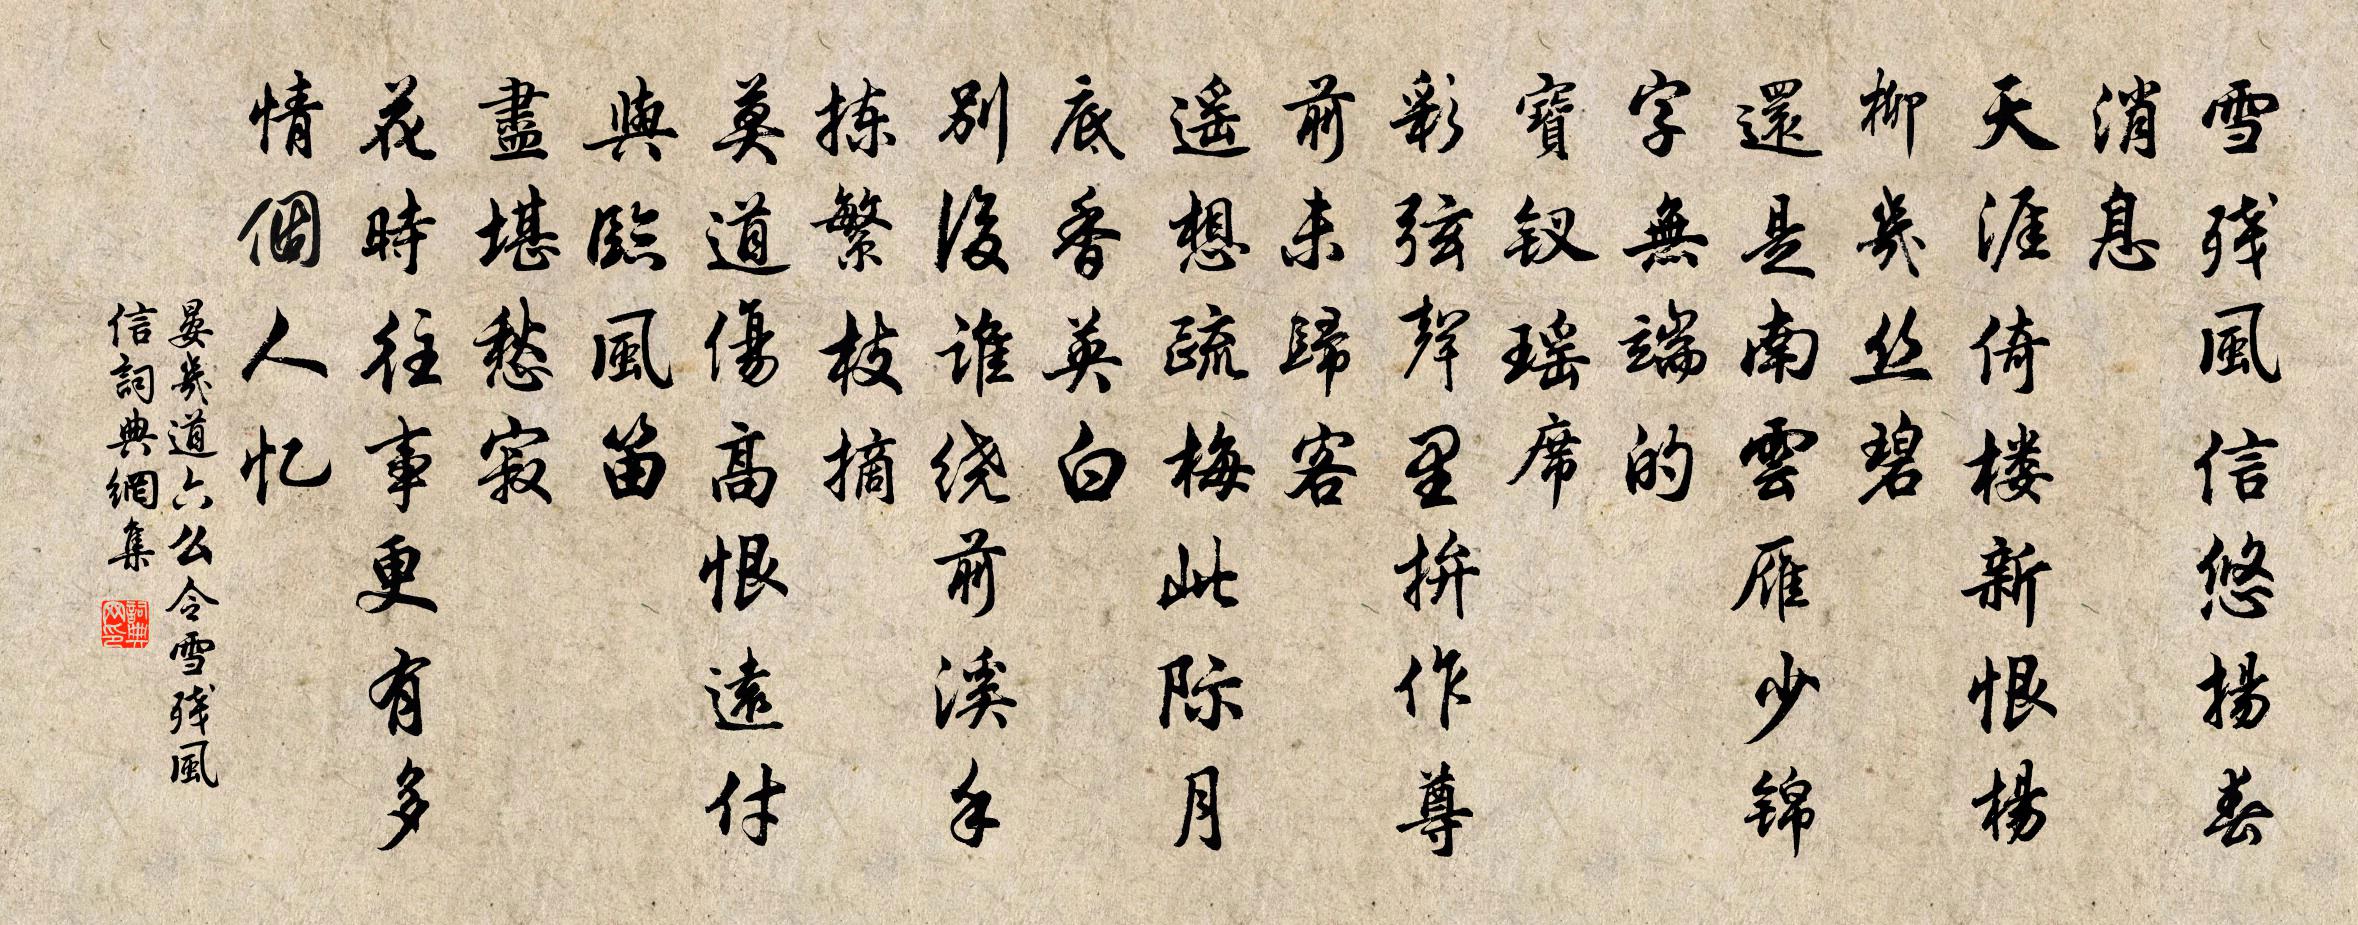 雪残風信悠揚春
消息
天涯倚楼新恨楊
柳幾丝碧
還是南雲雁少锦
字無端的
寶钗瑶席
彩弦聲里拚作尊
前未歸客
遥想疏梅此际月
底香英白
别後谁绕前溪手
拣繁枝摘
莫道傷高恨遠付
與臨風笛
盡堪愁寂
花時往事更有多
情個人忆
晏幾道六么令雪残風
信詞典網集
詞典
网印